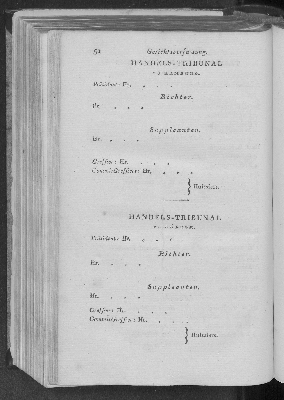 52 Gerichtsverfassung.
HANDELS-TRIBUNAL
ZU HAMBURG.
Präsident: Hr. . . . .
Richter.
Hr. . . .
Suppleanten.
Hr. . . .
Greffier: Hr. . . .
Commis-Greffier: Hr. . . .
} Huissiers.
HANDELS-TRIBUNAL
Präsident: Hr. . . .
Richter.
Hr. . . .
Suppleanten.
Hr. . . .
Greffier: Hr. . . .
Commis-Greffier: Hr. . . .
} Huissiers.